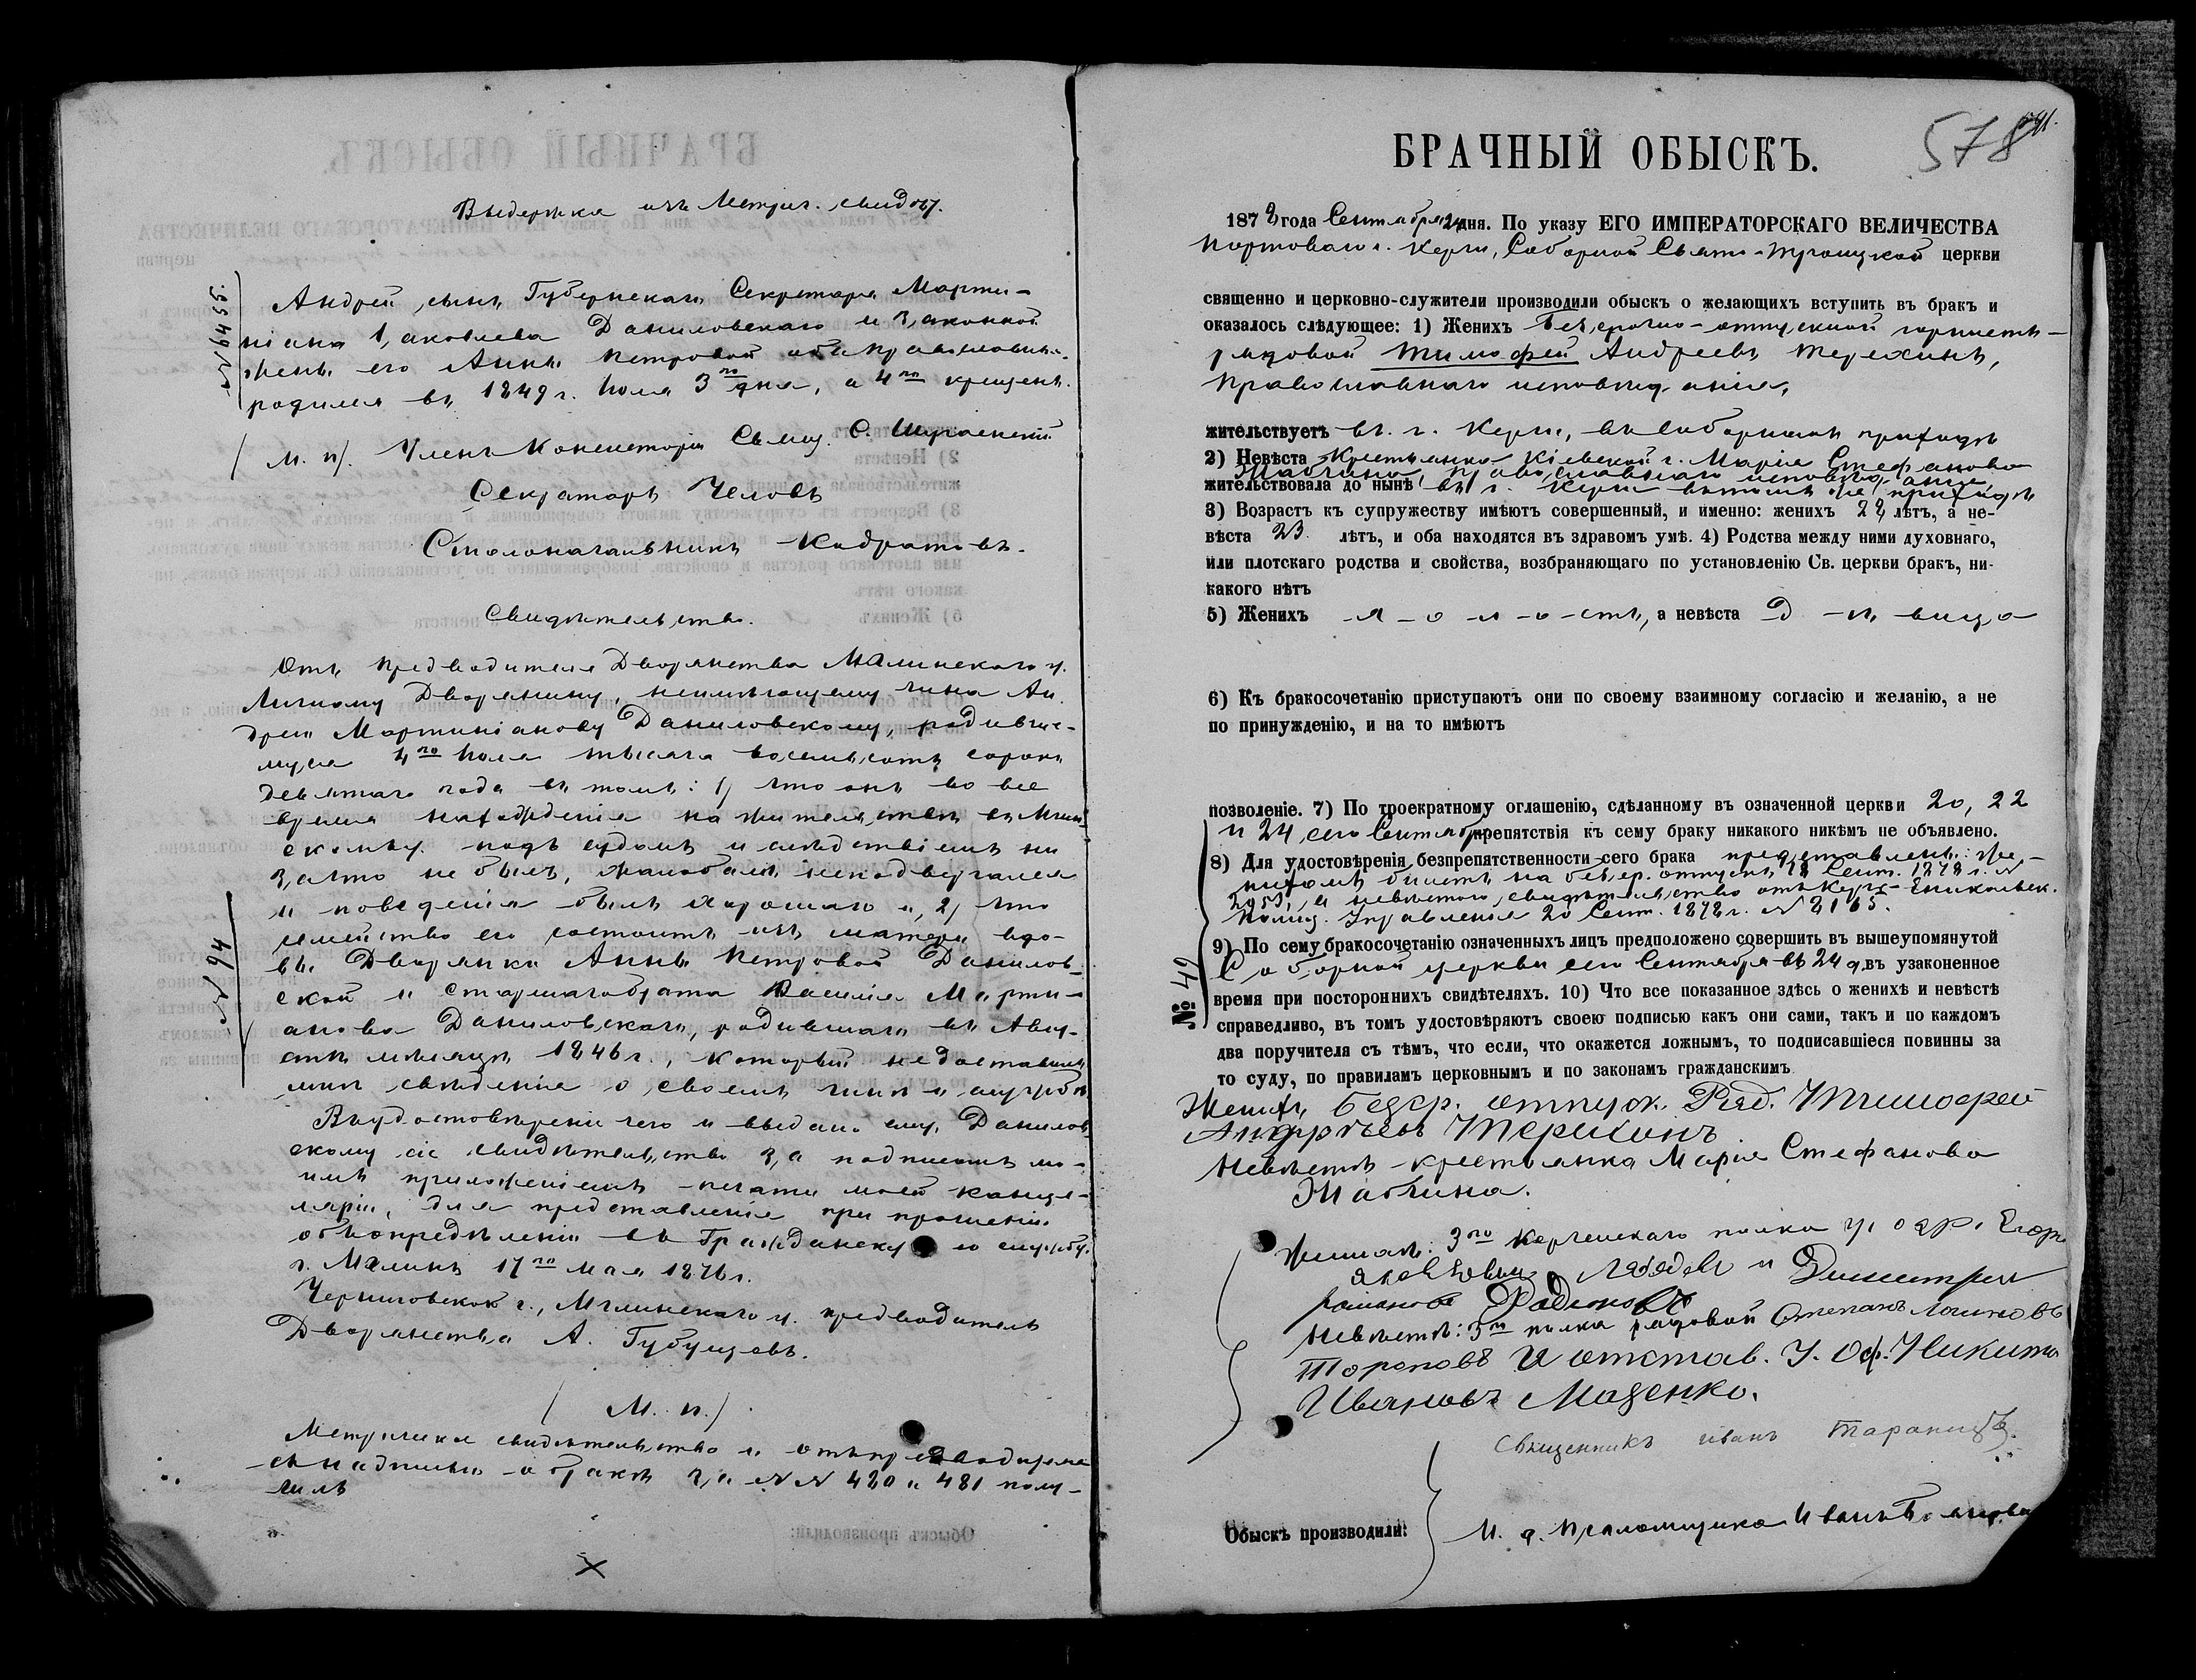 Выдержка изъ Метрич. свид.
№ 6455.
Андрей, сынъ Губернскаго Секретаря Марти-
ніана Іаковлева Даниловскаго и законной
жены его Анны Петровой оба православные.
родился въ 1849 г. Іюля 3го дня, а 4го крещенъ.
(М. п). Членъ Консисторіи Свящ. С.
Секретарь
Столоначальникъ
Свидѣтельство.
Отъ Предводителя Дворянства Мглинскаго у.
Личному Дворянину, неимѣющему чина Ан
дрею Мартиніанову Даниловскому, родивше-
муся 4го Іюля тысяча восемьсотъ сорокъ
девятаго года въ томъ: 1) что онъ во все
время нахожденія на жительствѣ въ Мглин
скомъ у. подъ судомъ и слѣдствіемъ ни
за что не былъ, жалобамъ неподвергался
и поведенія былъ хорошаго и, 2) что
№ 94
семейство его состоитъ изъ матери вдо-
вы Дворянки Анны Петровой Данилов-
ской и старшаго брата Василія Марти-
анова Даниловскаго, родившаго въ Авгу-
стѣ мѣсяцѣ 1846 г., который недоставилъ
мнѣ свѣдѣнія о своемъ чинѣ и службѣ
Въ удостовѣреніе чего и выдано ему, Данилов
скому сіе свидѣтельство за подписомъ мо-
имъ приложеніемъ печати моей канце-
ляріи, для представленія при прошеніи
объ опредѣленіи въ Гражданскую службу.
г. Мглинъ 17го Мая 1876 г.
Черниговской г., Мглинскаго у. предводитель
Дворянства А.
(М. п.)
Метрическое свидѣтельство и отъ предводителя
съ надписью о бракѣ за №№ 480 и 481 полу-
чилъ
578
БРАЧНЫЙ ОБЫСКЪ.
1878 года Сентября 24 дня. По указу ЕГО ИМПЕРАТОРСКАГО ВЕЛИЧЕСТВА
Портоваго г. Керчи, Соборной Свято-Троицкой церкви
священно и церковно-служители производили обыскъ о желающихъ вступить въ бракъ и
оказалось слѣдующее: 1) Женихъ Безсрочно-отпускной горнистъ-
рядовой Тимофей Андреевъ Терехинъ,
православнаго исповѣданія,
жительствуетъ въ г. Керчи, въ Соборномъ приходѣ
2) Невѣста Крестьянка Кіевской г. Марія Стефанова
православнаго исповѣданія
жительствовала до нынѣ въ г. Керчи въ томъ же приходѣ
3) Возрастъ къ супружеству имѣютъ совершенный, и именно: женихъ 28 лѣтъ, а не-
вѣста 23 лѣтъ, и оба находятся въ здравомъ умѣ. 4) Родства между ними духовнаго,
или плотскаго родства и свойства, возбраняющаго по установленію Св. церкви бракъ, ни-
какого нѣтъ
5) Женихъ х-о-л-о-стъ, а невѣста д-ѣ-вица
6) Къ бракосочетанію приступаютъ они по своему взаимному согласію и желанію, а не
по принужденію, и на то имѣютъ
позволеніе. 7) По троекратному оглашенію, сдѣланному въ означенной церкви 20, 22
и 24, сего Сентября препятствія къ сему браку никакого никѣмъ не объявлено.
8) Для удостовѣренія безпрепятственности сего брака представлены: же-
нихомъ билетъ на безср. отпускъ 18 Сент. 1878 г. №
2953, а невѣстою, свидѣтельство отъ Керч-Еникольск.
Полиц. Управленія 20 Сент. 1878 г. № 8165.
9) По сему бракосочетанію означенныхъ лицъ предположено совершить въ вышеупомянутой
Соборной церкви сего Сентября въ 24 д. въ узаконенное
№ 49
время при постороннихъ свидѣтеляхъ. 10) Что все показанное здѣсь о женихѣ и невѣстѣ
справедливо, въ томъ удостовѣряютъ своею подписью какъ они сами, такъ и по каждомъ
два поручителя съ тѣмъ, что если, что окажется ложнымъ, то подписавшіеся повинны за
то суду, по правиламъ церковнымъ и по законамъ гражданскимъ
Женихъ Безср. отпуск. Ряд. Тимофей
Андрѣевъ Терихинъ
Невѣста крестьянка Марія Стефанова
По женихѣ: 3го Керченскаго полка у. офр. Егоръ
Яковлевичъ Лебедевъ и Димитрій
Романовъ Родионовъ
По невѣстѣ: 3го полка рядовой Степанъ Логиновъ
Тороповъ и отстав. У. Оф. Никита
Ивановъ Мазенко.
Священникъ Иванъ
Обыскъ производили: И. д. Псаломщика Иванъ